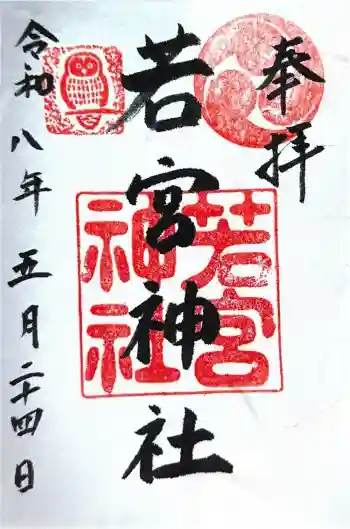 奉拝
若宮神社
若宮
神社
令和八年五月二十四日